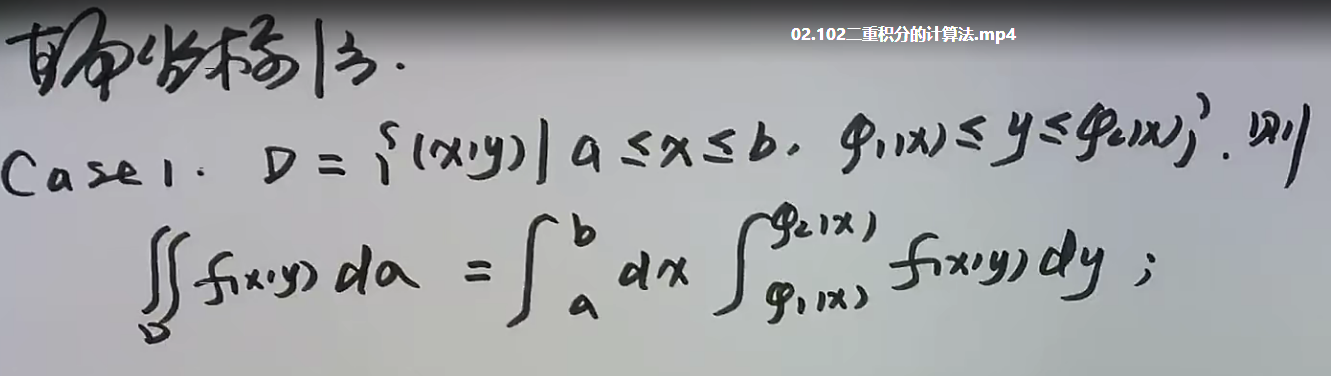 02.102二重积分的计算法.mp4
直角坐标法.
Case 1. D = {(x,y) | a ≤ x ≤ b, φ₁(x) ≤ y ≤ φ₂(x)}. 则
∬_D f(x,y) dσ = ∫_a^b dx ∫_{φ₁(x)}^{φ₂(x)} f(x,y) dy ;